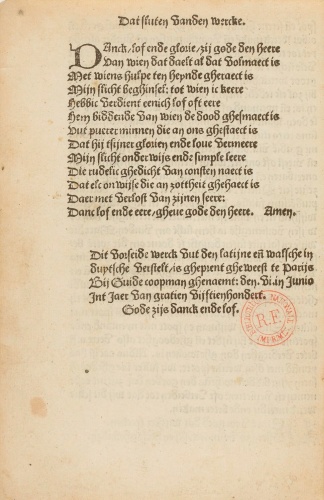 Dat sluten vanden wercke.
DAnck/ lof ende glorie/ zij gode den heere
Van wien dat daelt al dat volmaect is
Met wiens hulpe ten heynde gheraect is
Mijn slicht beghinsel: tot wien ic keere
Hebbic verdient eenich lof oft eere
Hem biddende van wien de dood ghesmaect is
Vut puerer minnen die an ons ghestaect is
Dat hij tsijner glorien ende love vermeere
Mijn slicht onderwijs ende simple leere
Die rudelic ghedicht van consten naect is
Dat elc onwijse die an zottheit ghehaect is
Daer met verlost van zijnen seere:
Danc lof ende eere/ gheve gode den heere. Amen.
Dit vorseide werck vut den latijne en̄ walsche in
duytsche verstelt/ is gheprent gheweest te Parijs
Bij Guide coopman ghenaemt: den. vi. in Junio
Int Jaer van gratien vijftienhondert.
Gode zijs danck ende lof.
R.F.